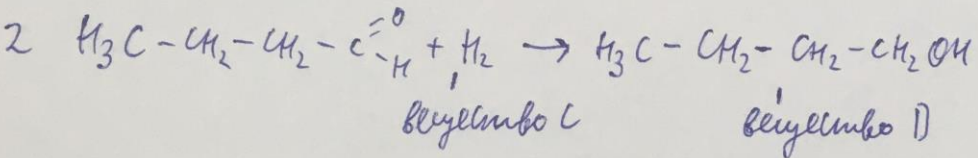 2 H₃C-CH₂-CH₂-C=O-H + H₂ → H₃C-CH₂-CH₂-CH₂OH
вещество C вещество D